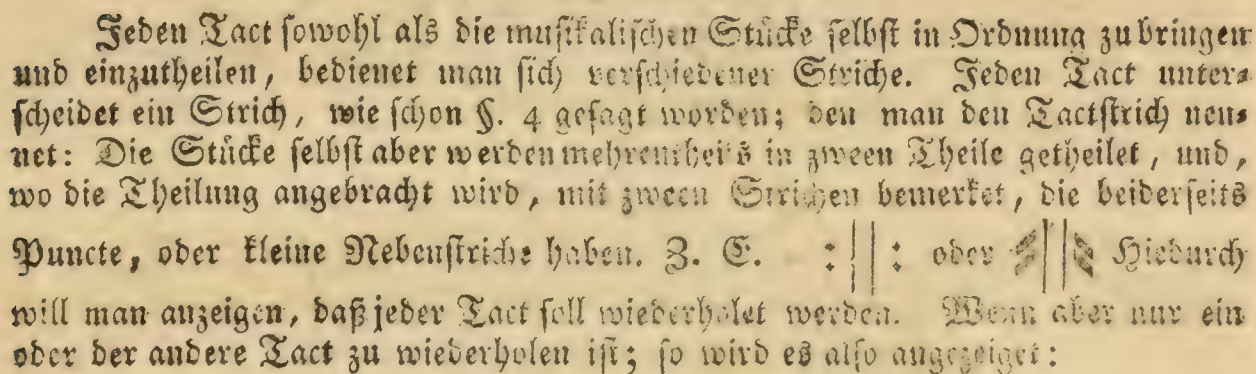 Jeden Tact sowohl als die musikalischen Stücke selbst in Ordnung zu bringen
und einzutheilen, bedienet man sich verschiedener Striche. Jeden Tact unter-
scheidet ein Strich, wie schon §. 4 gesagt worden; den man den Tactstrich nen-
net: Die Stücke selbst aber werden mehrentheils in zween Theile getheilet, und,
wo die Theilung angebracht wird, mit zween Strichen bemerket, die beiderseits
Puncte, oder kleine Nebenstriche haben. Z. E. :||: oder || Hiedurch
will man anzeigen, daß jeder Tact soll wiederholet werden. Wenn aber nur ein
oder der andere Tact zu wiederholen ist; so wird es also angezeiget: